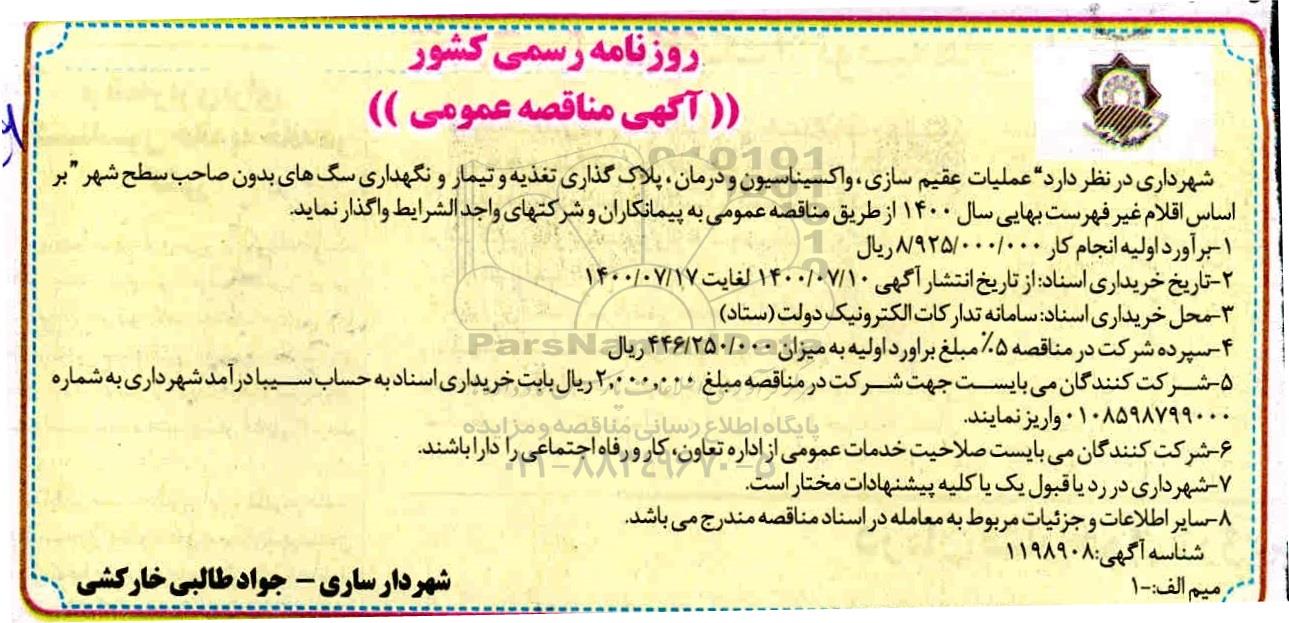 روزنامه رسمی کشور
(( آگهی مناقصه عمومی ))
شهرداری در نظر دارد "عملیات عقیم سازی، واکسیناسیون و درمان، پلاک گذاری تغذیه و تیمار و نگهداری سگ های بدون صاحب سطح شهر" بر
اساس اقلام غیر فهرست بهایی سال ۱۴۰۰ از طریق مناقصه عمومی به پیمانکاران و شرکتهای واجد الشرایط واگذار نماید.
۱-برآورد اولیه انجام کار ۸/۹۲۵/۰۰۰/۰۰۰ ریال
۲-تاریخ خریداری اسناد: از تاریخ انتشار آگهی ۱۴۰۰/۰۷/۱۰ لغایت ۱۴۰۰/۰۷/۱۷
۳-محل خریداری اسناد: سامانه تدارکات الکترونیک دولت (ستاد)
۴-سپرده شرکت در مناقصه ۵٪ مبلغ براورد اولیه به میزان ۴۴۶/۲۵۰/۰۰۰ ریال
۵-شرکت کنندگان می بایست جهت شرکت در مناقصه مبلغ ۲,۰۰۰,۰۰۰ ریال بابت خریداری اسناد به حساب سیبا درآمد شهرداری به شماره
۰۱۰۸۵۹۸۷۹۹۰۰۰ واریز نمایند.
۶-شرکت کنندگان می بایست صلاحیت خدمات عمومی از اداره تعاون، کار و رفاه اجتماعی را دارا باشند.
۷-شهرداری در رد یا قبول یک یا کلیه پیشنهادات مختار است.
۸-سایر اطلاعات و جزئیات مربوط به معامله در اسناد مناقصه مندرج می باشد.
شناسه آگهی: ۱۱۹۸۹۰۸
میم الف:-۱
شهردار ساری - جواد طالبی خارکشی
ParsNamadData
پایگاه اطلاع رسانی مناقصه و مزایده
۰۲۱-۸۸۳۴۹۶۷۰-۵